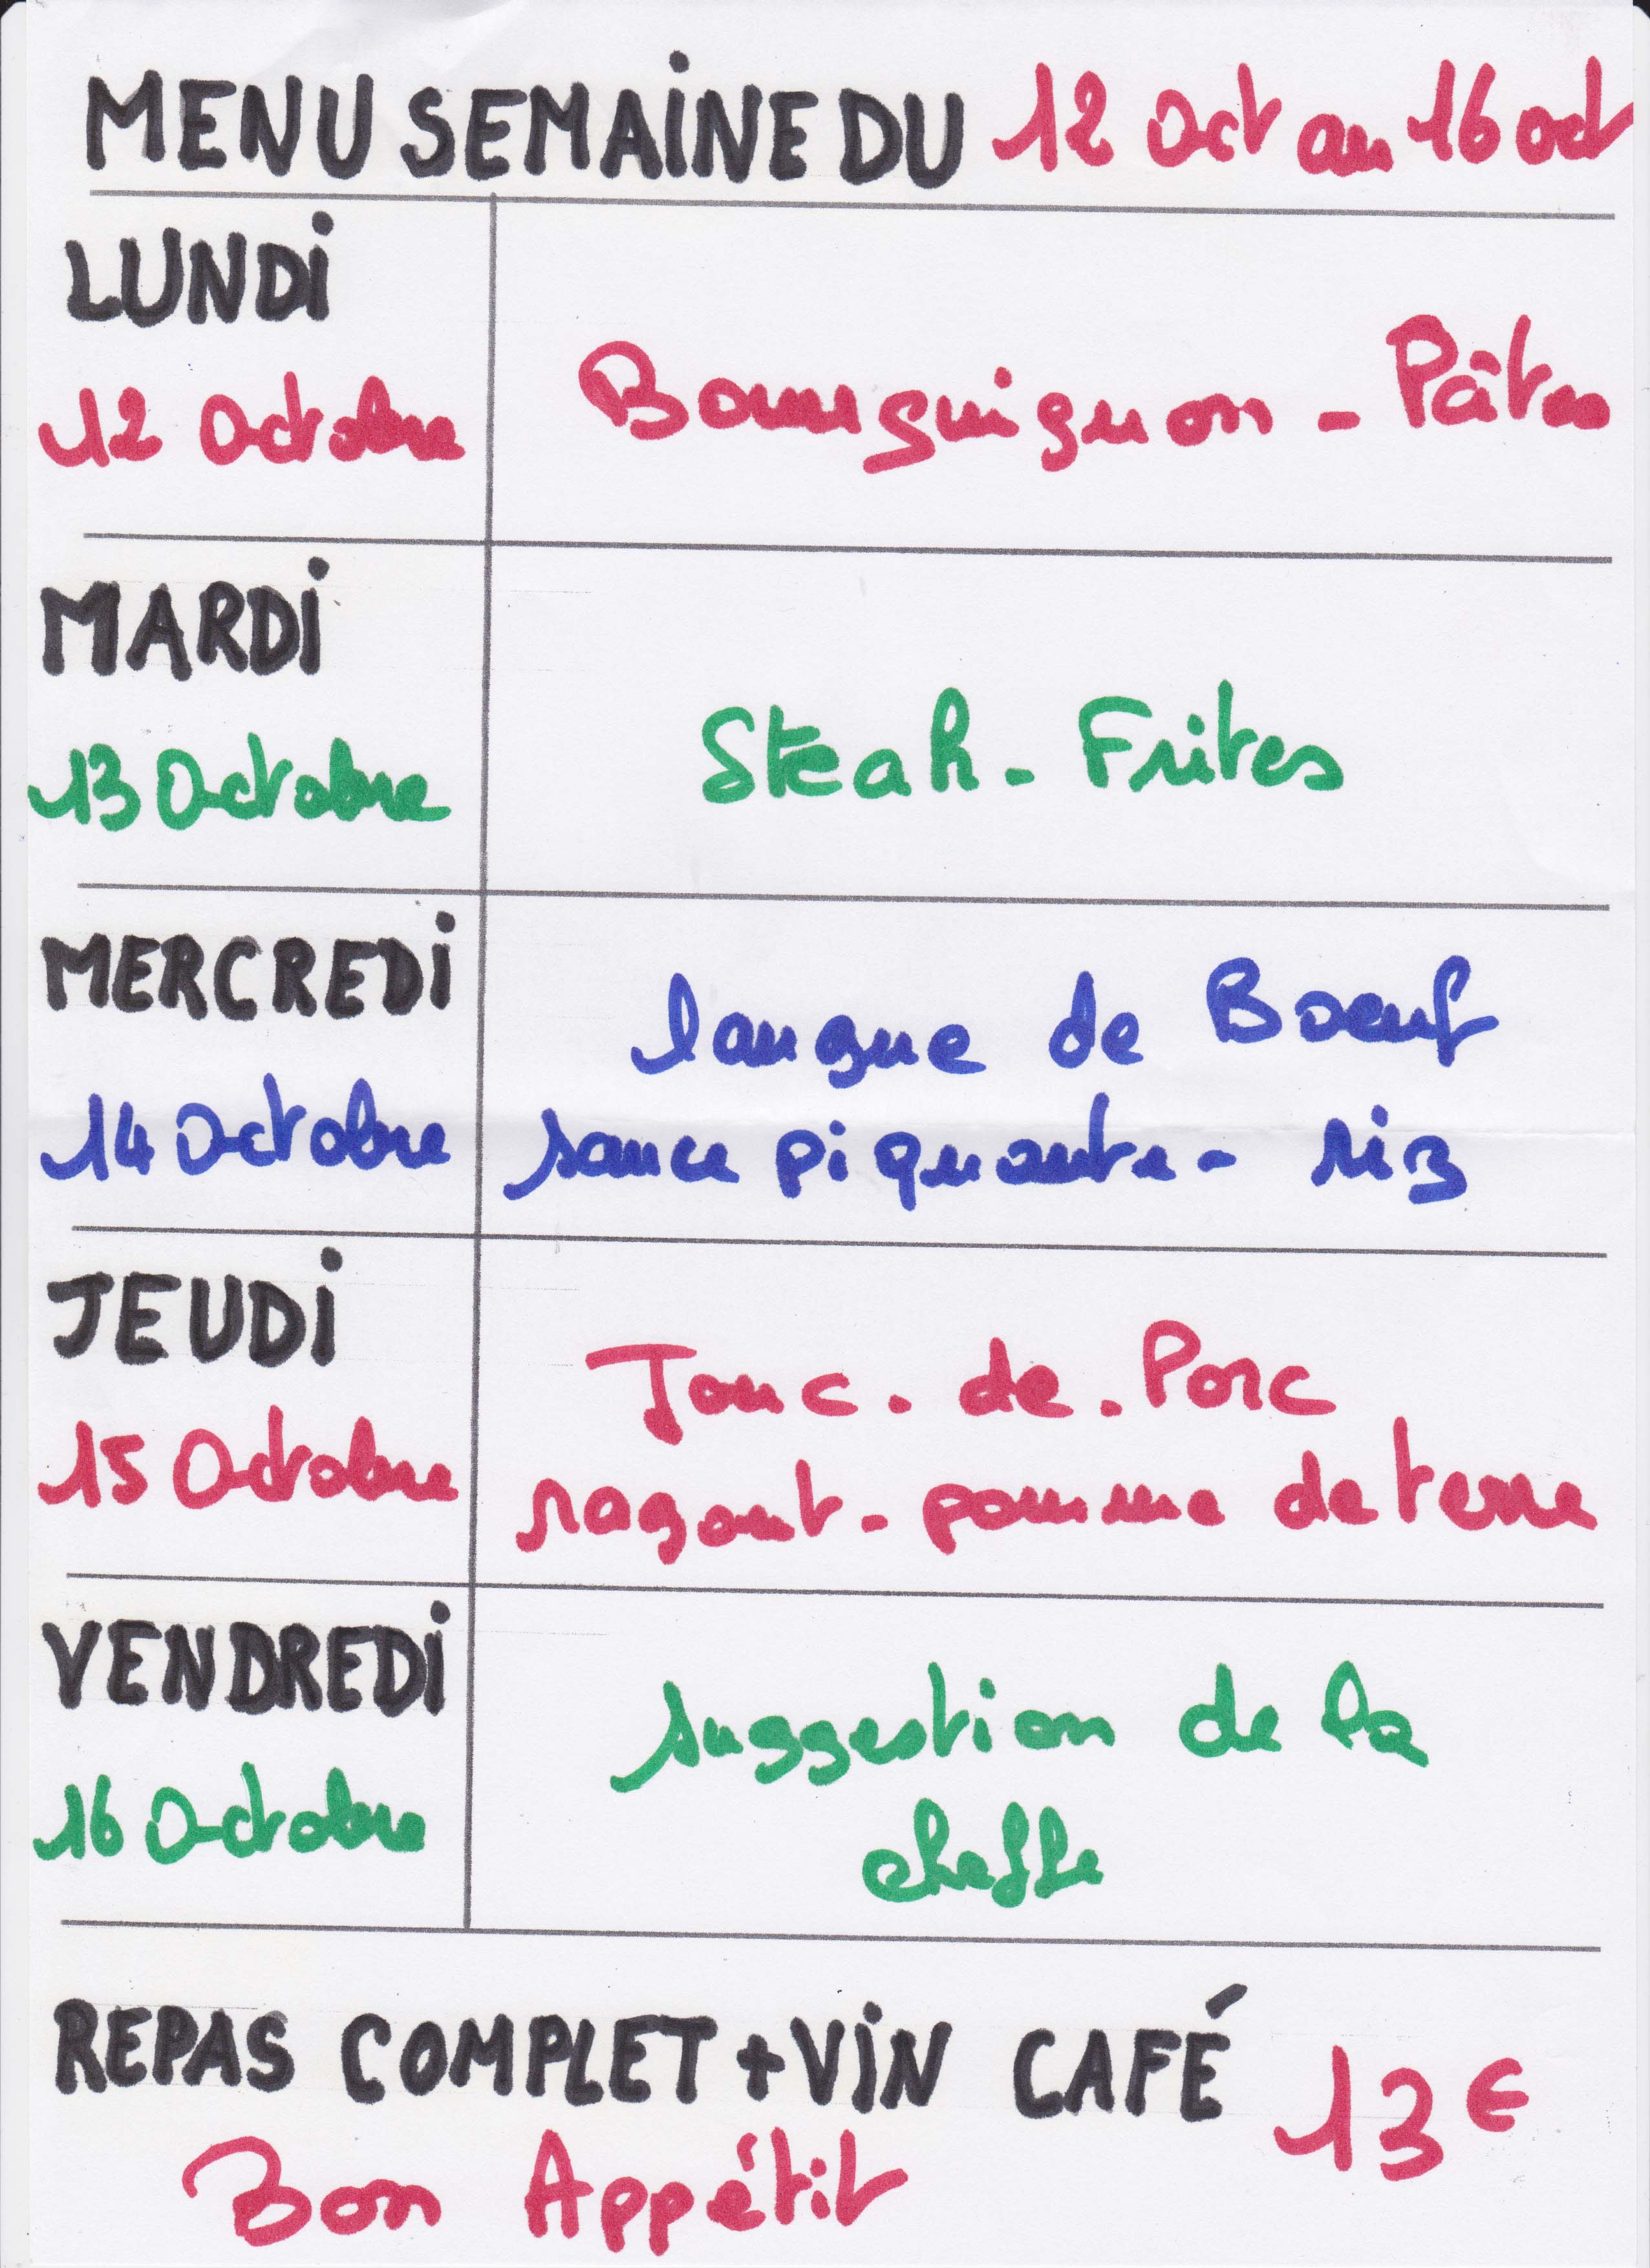 MENU SEMAINE DU 12 Oct au 16 oct
LUNDi
12 Octobre
Bourguignon - Pâtes
MARDi
13 Octobre
Steak - Frites
MERCREDi
14 Octobre
langue de Boeuf
sauce piquante - riz
JEUDi
15 Octobre
Joue . de . Porc
ragout - pomme de terre
VENDREDi
16 Octobre
suggestion de la
cheffe
REPAS COMPLET + ViN CAFÉ 13 €
Bon Appétit